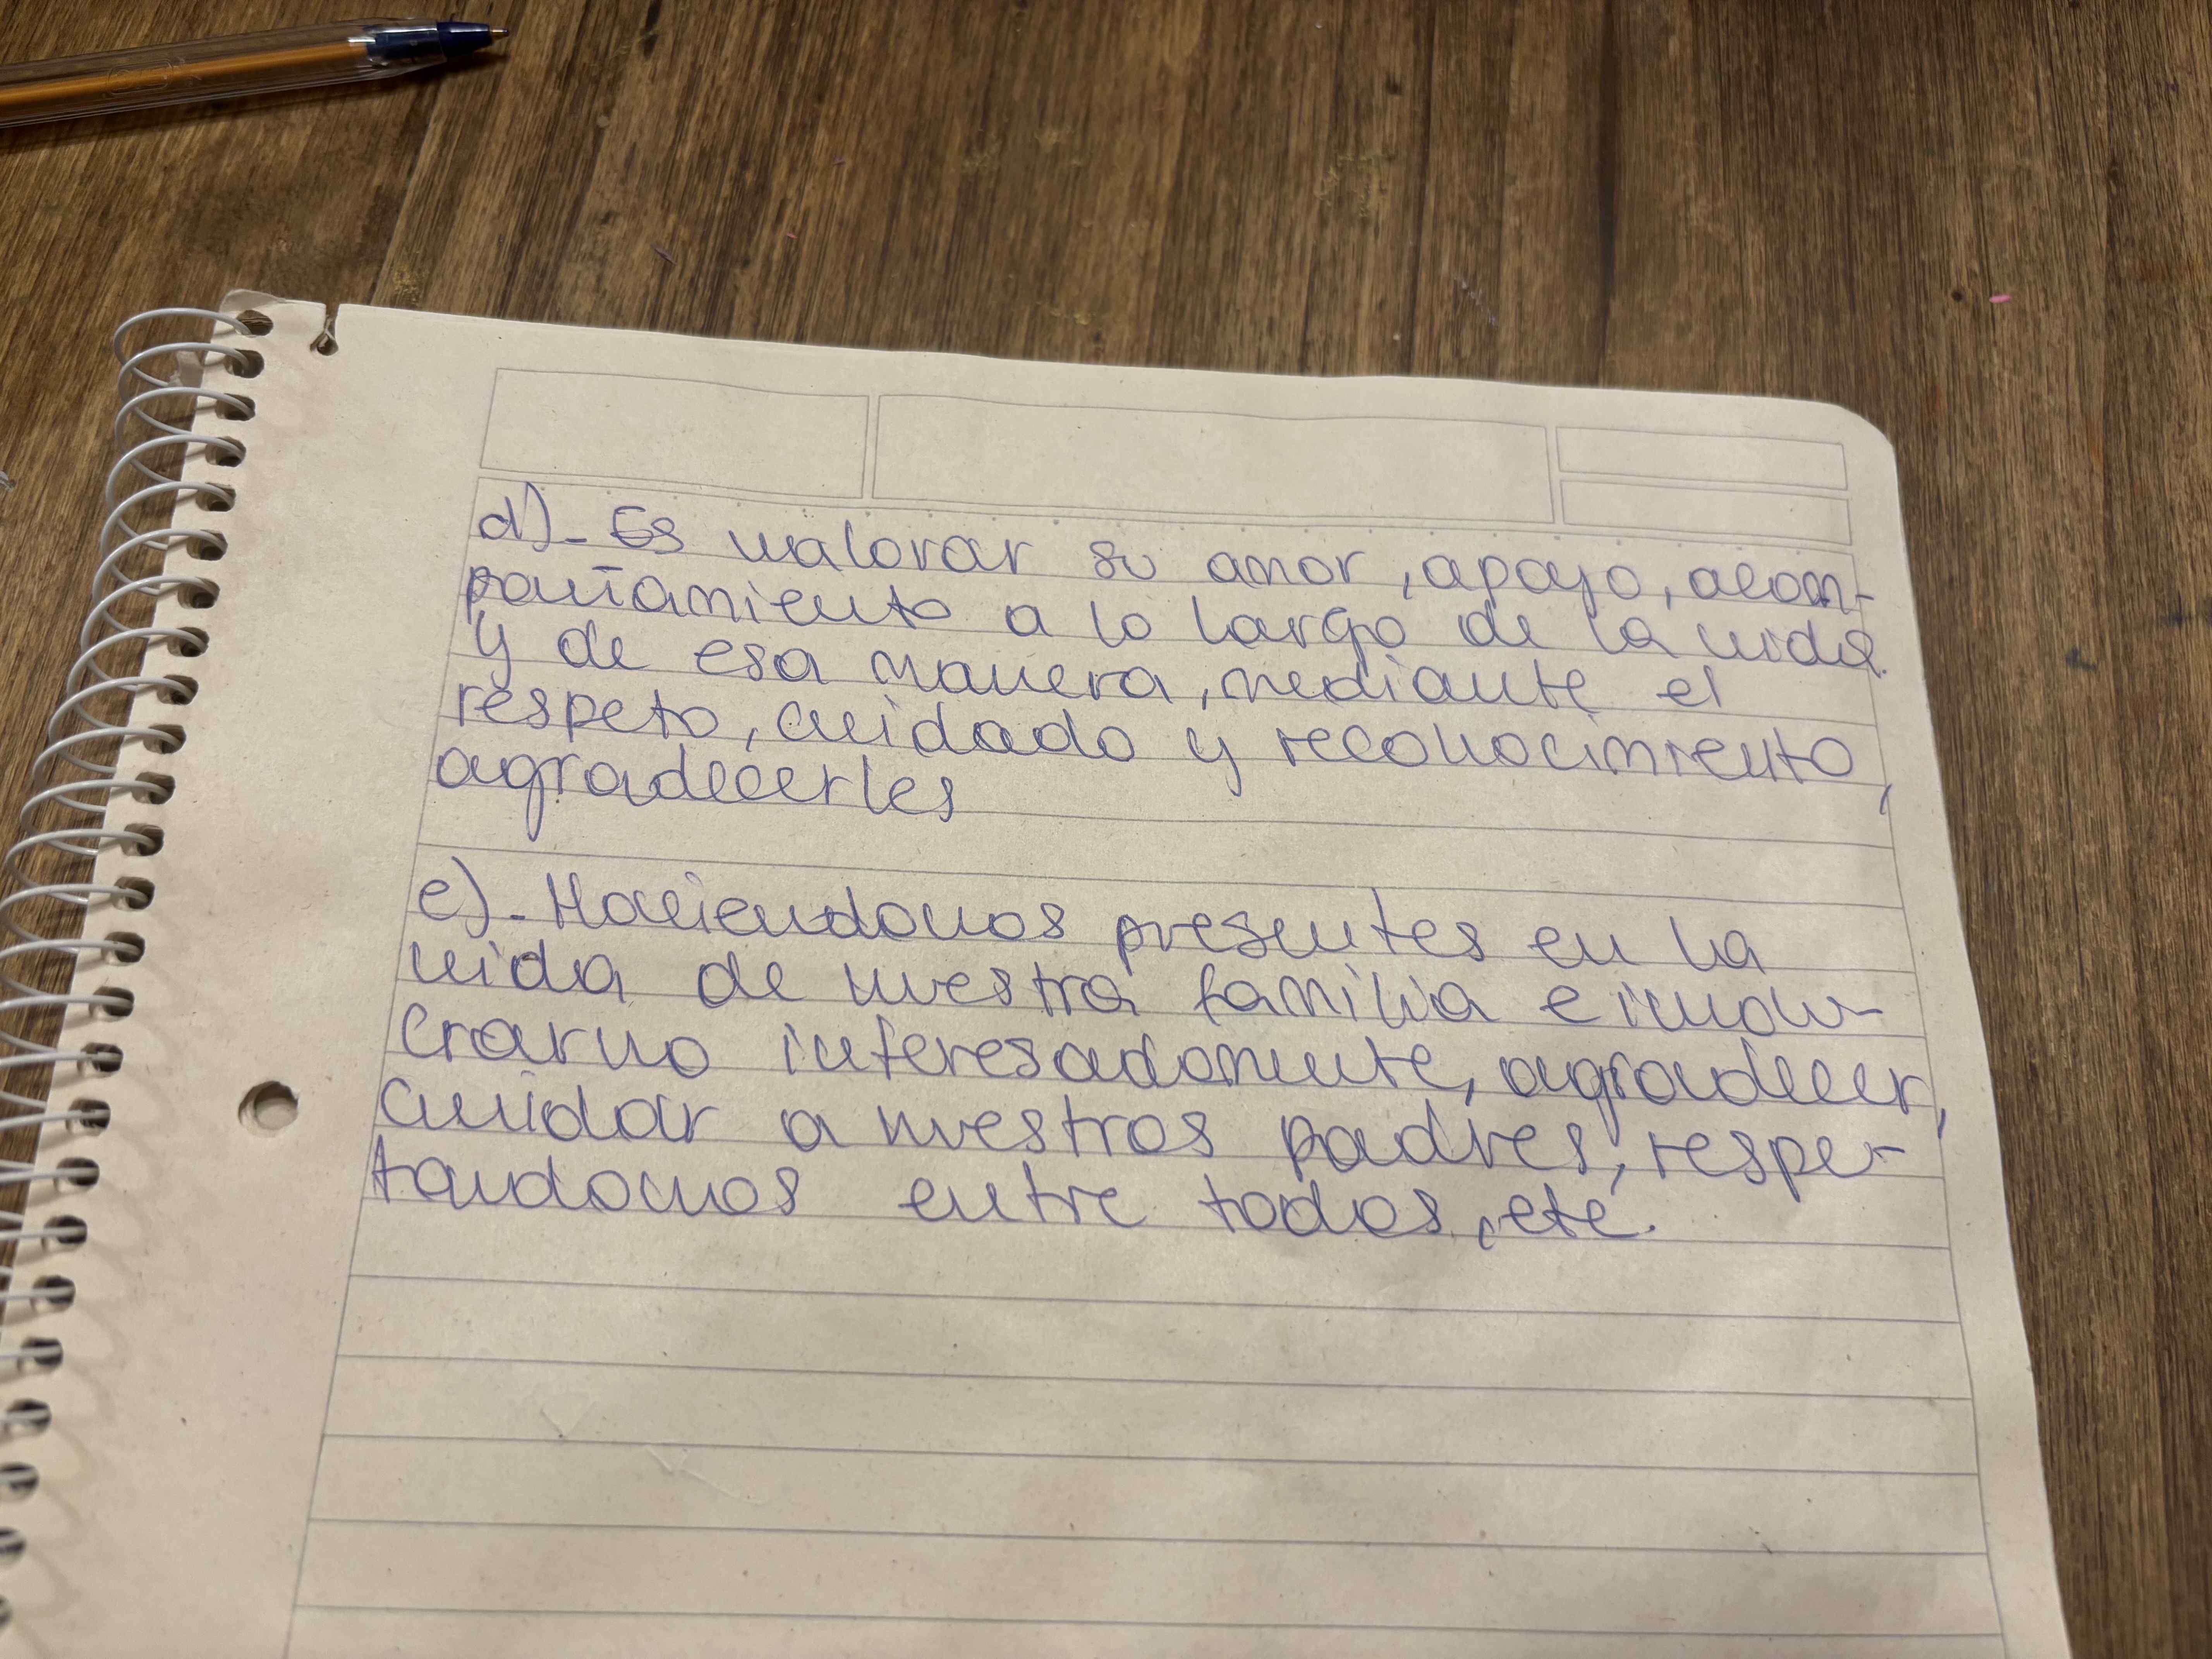 d)- Es valorar su amor, apoyo, acom-
pañamiento a lo largo de la vida
y de esa manera, mediante el
respeto, cuidado y reconocimiento,
agradecerles
e)- Haciendonos presentes en la
vida de nuestra familia e involu-
crarno interesadamente, agradecer,
cuidar a nuestros padres, respe-
tandonos entre todos, etc.